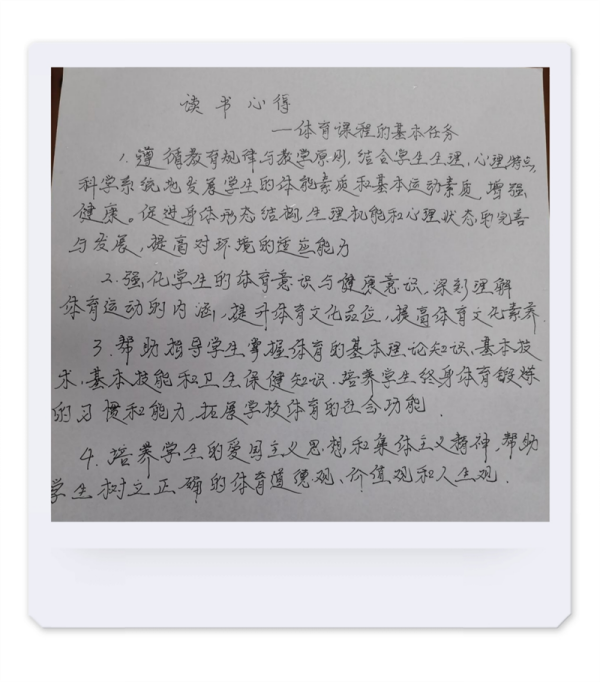 读书心得
—体育课程的基本任务
1.遵循教育规律与教学原则,结合学生生理,心理特点,
科学系统地发展学生的体能素质和基本运动素质,增强
健康。促进身体形态结构,生理机能和心理状态的完善
与发展,提高对环境的适应能力
2.强化学生的体育意识与健康意识,深刻理解
体育运动的内涵,提升体育文化品位,提高体育文化素养.
3.帮助指导学生掌握体育的基本理论知识、基本技
术、基本技能和卫生保健知识.培养学生终身体育锻炼
的习惯和能力,拓展学校体育的社会功能.
4.培养学生的爱国主义思想和集体主义精神,帮助
学生树立正确的体育道德观、价值观和人生观.